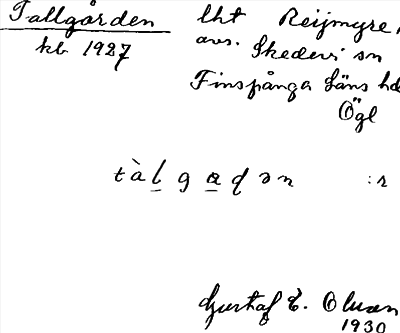 Tallgården lht Reijmyre,
kb 1927 avs. Skedevi sn
Finspånga läns hd
Ögl
tàlgadən :s
Gustaf E. Olsson
1930